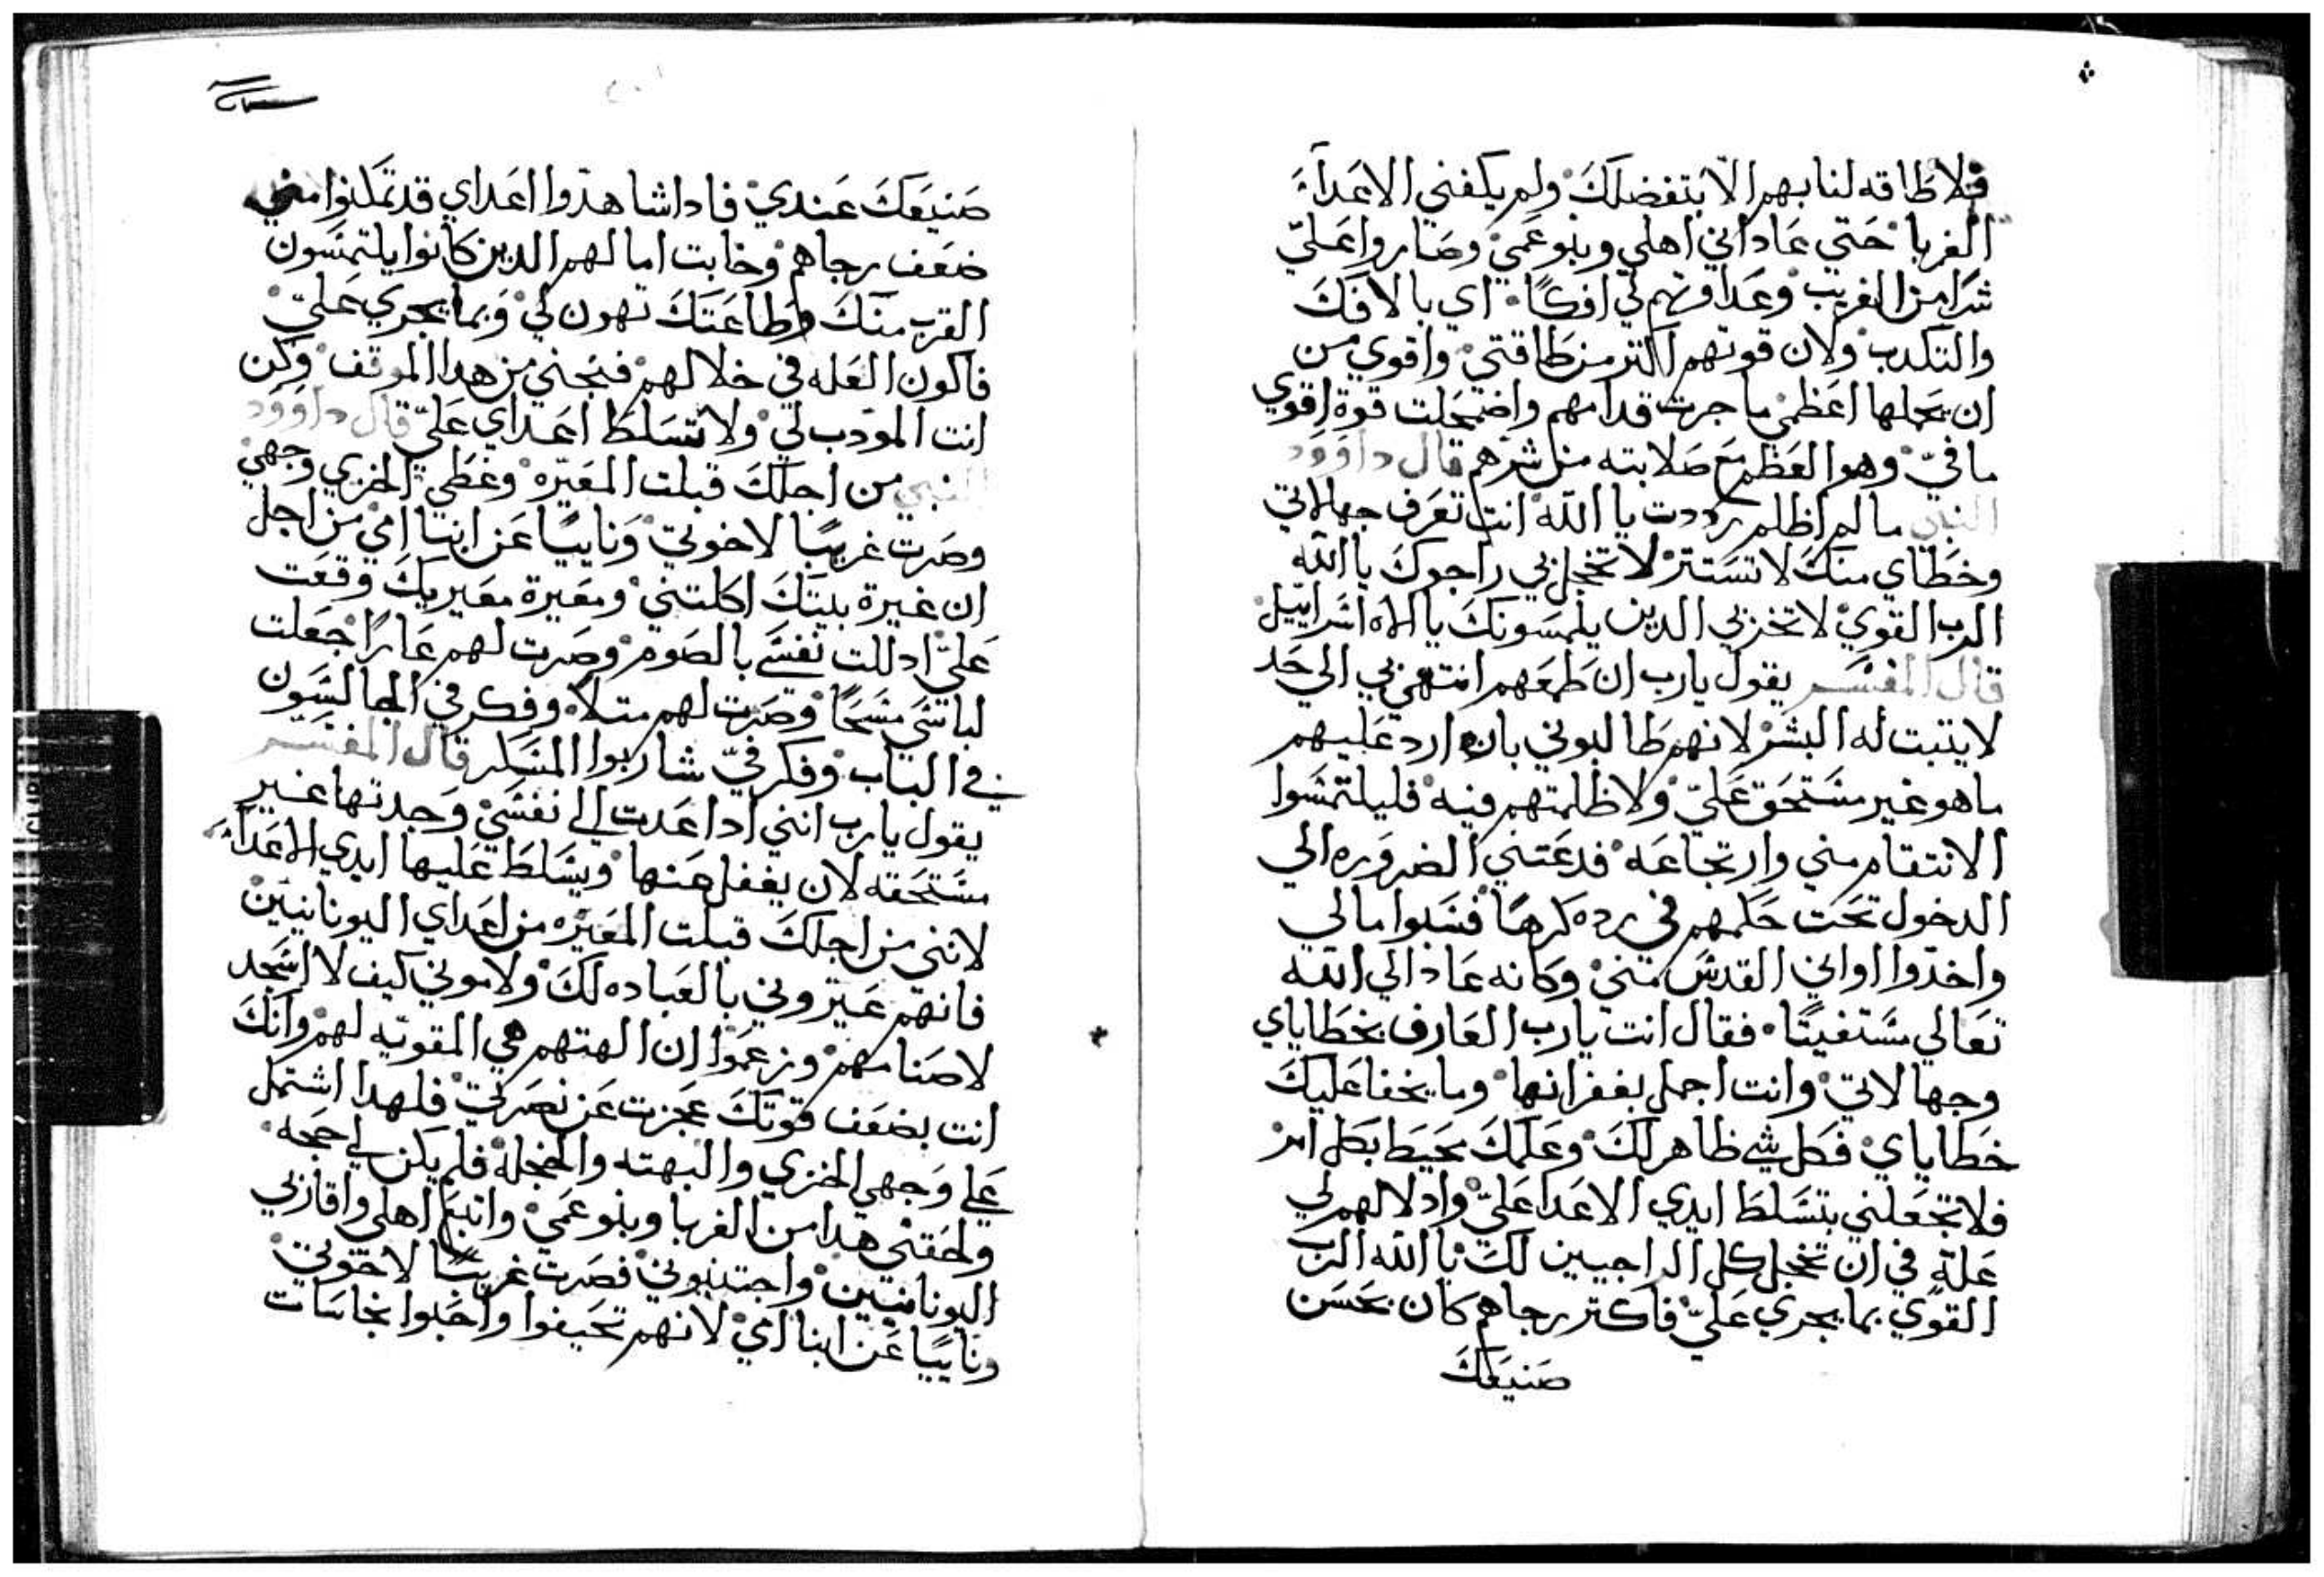 فلا طاقه لنا بهم الا بتفضلك ولم يكفني الاعدآء
الغربا حتي عاداني اهلي وبنو عمي وصاروا عليّ
شرا من الغريب وعداوتهم لي افكًا اي بالافك
والتكدب ولان قوتهم اكتر من طاقتي واقوي من
ان يحملها اعظمي ما جرت قدامهم واضمحلت قوة اقوي
ما فيّ وهوا العظم مع صلابته من شرهم قال داوود
النبي ما لم اظلم رددت يا الله انت تعرف جهالاتي
وخطاي منك لا تستتر لا تخجل بي راجوك يا الله
الرب القوي لا تخزبي الدين يلمسونك يا الاه اسراييل
قال المفسر يقول يارب ان طمعهم انتهي بي الي حد
لا يتبت له البشر لانهم طالبوني بان ارد عليهم
ما هو غير مستحق عليّ ولا ظلمتهم فيه فليلتمسوا
الانتقام مني وارتجاعه فدعتني الضروره الي
الدخول تحت حكمهم في رده كرهًا فسلبوا مالي
واخدوا اواني القدس مني وكانه عاد الي الله
تعالي مستغيتًا فقال انت يارب العارف بخطاياي
وجهالاتي وانت اجمل بغفرانها وما يخفا عليك
خطاياي فكل شي ظاهر لك وعلمك محيط بكل امر
فلا تجعلني بتسلط ايدي الاعدا عليّ وادلالهم لي
علةً في ان تخجل كل الراجيين لك يا الله الرب
القوي بما يجري عليّ فاكتر رجاهم كان بحسن
صنيعك
صنيعك عندي فادا شاهدوا اعداي قد تمكنوا مني
ضعف رجاهم وخابت امالهم الدين كانوا يلتمسون
القرب منك وطاعتك تهون لي وبما يجري عليّ
فاكون العله في خلالهم فنجني من هدا الموقف وكن
انت المودب لي ولا تسلط اعداي عليّ قال داوود
النبي من اجلك قبلت المعيّره وغطي الخزي وجهي
وصرت غريبًا لاخوتي ونايبًا عن ابنا امي من اجل
ان غيرة بيتك اكلتني ومعيرة معيريك وقعت
عليّ ادللت نفسي بالصوم وصرت لهم عارًا جعلت
لباسي مسحًا وصرت لهم متلاً وفكر في الجالسون
في الباب وفكر فيّ شاربوا المسكر قال المفسر
يقول يارب انني ادا عدت الي نفسي وجدتها غير
مستحقه لان يغفل عنها ويسلط عليها ايدي الاعدآء
لانني من اجلك قبلت المعيّره من اعداي اليونانيين
فانهم عيّروني بالعباده لك ولاموني كيف لا اسجد
لاصنامهم وزعموا ان الهتهم هي المقويه لهم وانك
انت بضعف قوتك عجزت عن نصرتي فلهدا اشتمل
علي وجهي الخزي والبهته والخجلة فلم يكن لي حجه
ولحقني هدا من الغربا وبنو عمي واتبع اهلي واقاربي
اليونانيين واجتنبوني فصرت غريبًا لاخوتي
ونايبًا عن ابنا امي لانهم تحيفوا واحبوا نجاسات